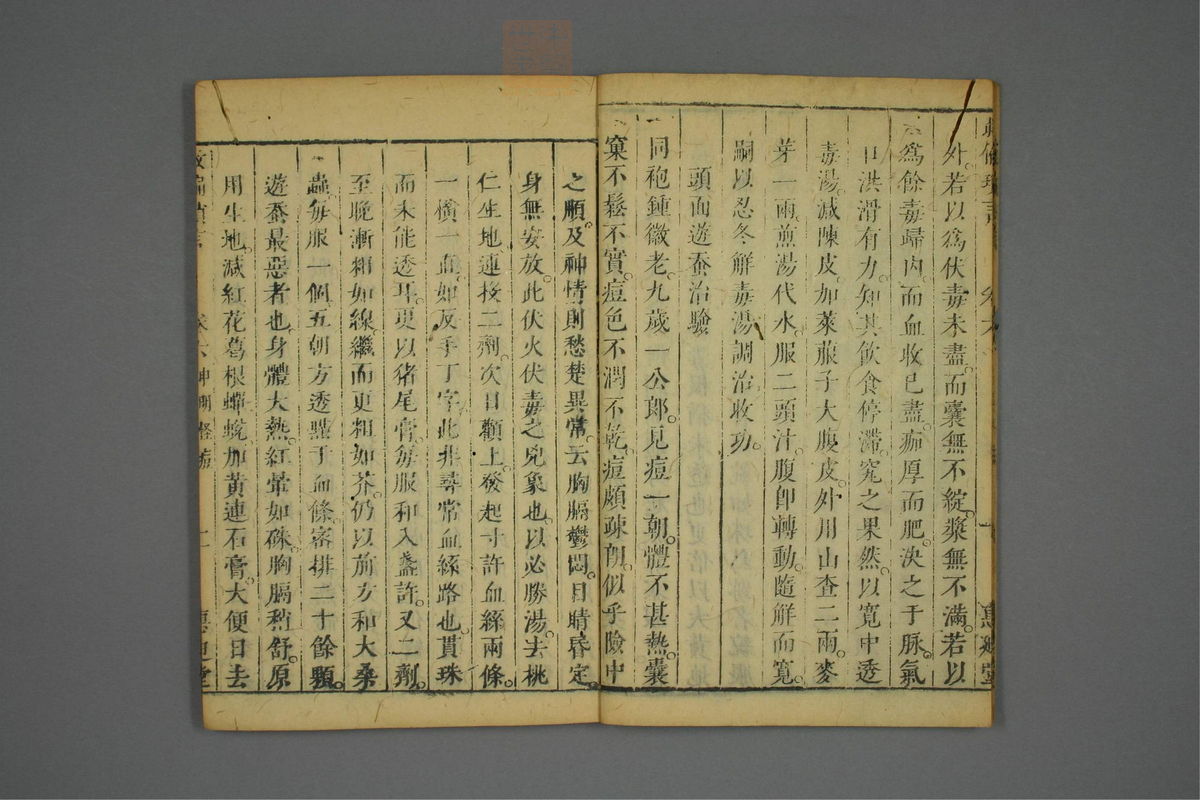 外若以爲伏毒未盡而囊無不綻漿無不滿若以
爲餘毒歸内而血收已盡痂厚而肥決之于脉氣
口洪滑有力知其飲食停滯究之果然以寬中透
毒湯減陳皮加萊菔子大腹皮外用山查二兩麥
芽一兩煎湯代水服二頭汁腹卽轉動隨解而寬
嗣以忍冬解毒湯調治收功
頭面遊蚕治驗
同袍鍾徽老九歲一公郎見痘一朝體不甚熱囊
窠不鬆不實痘色不潤不乾痘頗疎朗似乎險中
之順及神情則愁楚異常云胸膈鬱悶目睛昏定
身無安放此伏火伏毒之兇象也以必勝湯去桃
仁生地連投二劑次日顴上發起寸許血絲兩條
一橫一血如反手丁字此非尋常血絲路也貫珠
而未能透耳更以猪尾膏每服和入盞許又二劑
至晚漸粗如線繼而更粗如芥仍以前方和大桑
蟲每服一個五朝方透點于血條密排二十餘顆
遊蚕最惡者也身體大熱紅暈如硃胸膈稍舒原
用生地減紅花葛根蟬蛻加黃連石膏大便日去